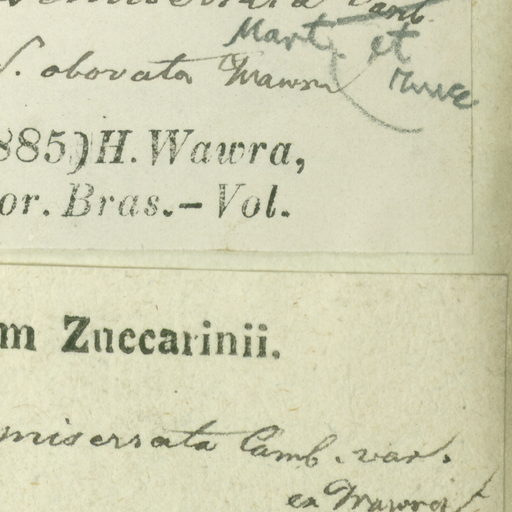 Camb.
Mart. et
V. obovata Wawra Zucc
885) H. Wawra,
or. Bras.—Vol.
m Zuccarinii.
miserrata Camb. var.
ex Wawra